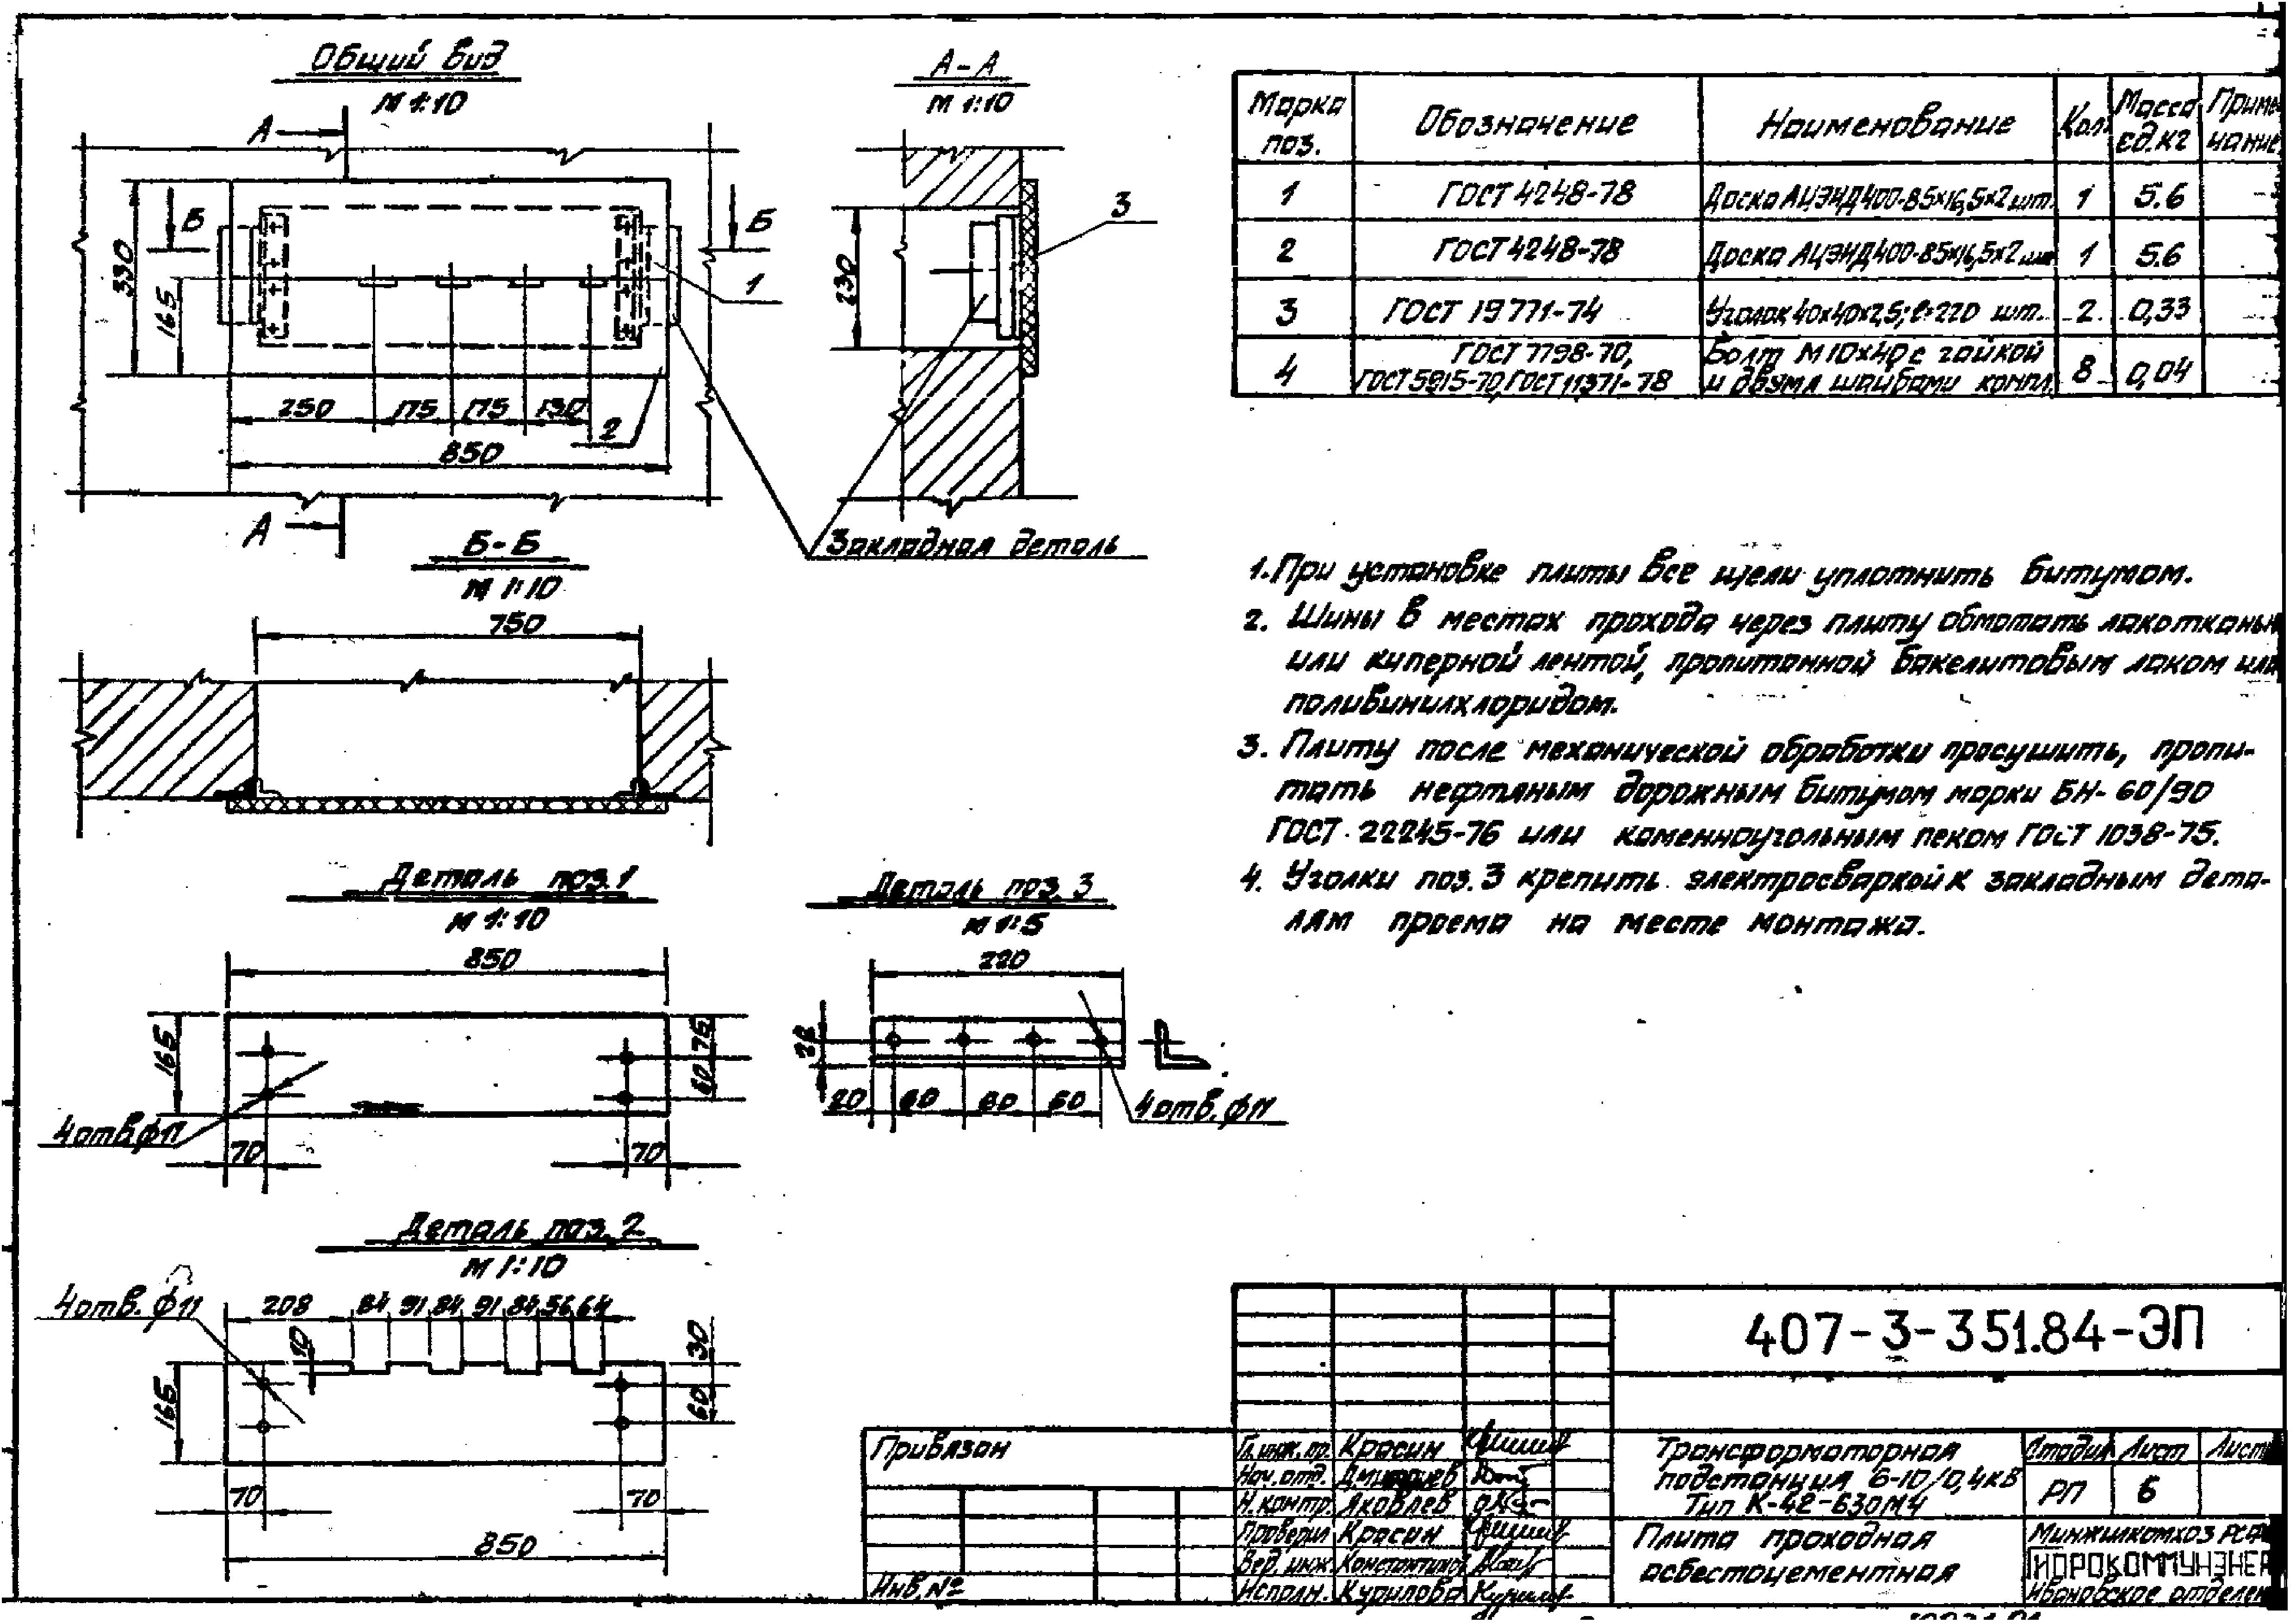 Общий вид
М 1:10
А
Б
Б
330
165
1
250
175
175
130
2
850
А
А-А
М 1:10
3
230
Закладная деталь
Б-Б
М 1:10
750
Деталь поз.1
М 1:10
850
165
75
60
4отв.ф11
70
70
Деталь поз. 3
М 1:5
220
20
60
60
60
4отв.ф11
Деталь поз. 2
М 1:10
4отв. ф11
208
84
91
84
91
84
56
64
10
30
60
165
70
70
850
Марка поз.
Обозначение
Наименование
Кол.
Масса ед.кг
1
ГОСТ 4248-78
Доска АЦЭИД400-85х16,5х2 шт.
1
5.6
2
ГОСТ 4248-78
Доска АЦЭИД400-85х16,5х2 шт
1
5.6
3
ГОСТ 19771-74
Уголок 40х40х2,5; ℓ=220 шт.
2
0,33
4
ГОСТ 7798-70,
ГОСТ 5915-70, ГОСТ 11371-78
Болт М10х40 с гайкой
и двумя шайбами компл.
8
0,04
1. При установке плиты все щели уплотнить битумом.
2. Шины в местах прохода через плиту обмотать
или киперной лентой, пропитанной бакелитовым лаком или
поливинилхлоридом.
3. Плиту после механической обработки просушить, пропи-
тать нефтяным дорожным битумом марки БН-60/90
ГОСТ 22245-76 или каменноугольным пеком ГОСТ 1038-75.
4. Уголки поз. 3 крепить электросваркой к закладным дета-
лям проема на месте монтажа.
407-3-351.84-ЭП
Привязан
Инв.№
Гл.инж.пр. Красин
Нач.отд. Дмитриев
Н.контр. Яковлев
Проверил Красин
Вед.инж.
Исполн. Курилова
Трансформаторная
подстанция 6-10/0,4кВ
Тип К-42-630М4
Стадия
Лист
РП
6
Плита проходная
асбестоцементная
Минжилкомхоз
Ивановское